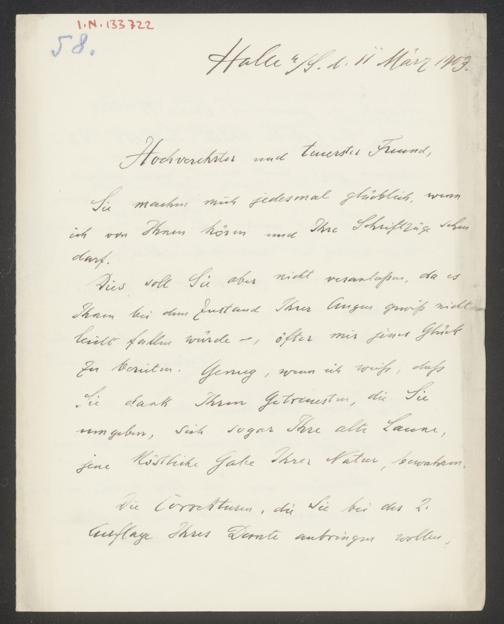 I.N. 133722
58.
Halle a/S. d. 11 März 1903.
Hochverehrter und teuerster Freund,
Sie machen mich jedesmal glücklich, wenn
ich von Ihnen hören und Ihre Schriftzüge sehen
darf.
Dies soll Sie aber nicht veranlaßen, da es
Ihnen bei dem Zustand Ihrer Augen gewiß nicht
leicht fallen würde –, öfter mir jenes Glück
zu bereiten. Genug, wenn ich weiß, daß
Sie dank Ihren Getreuesten, die Sie
umgeben, sich sogar Ihre alte Laune,
jene köstliche Gabe Ihrer Natur, bewahren.
Die Correkturen, die Sie bei der 2.
Auflage Ihres Dante anbringen wollen,